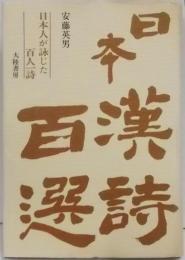 日本漢詩
百選
安藤英男
日本人が詠じた
百人一詩
大陸書房